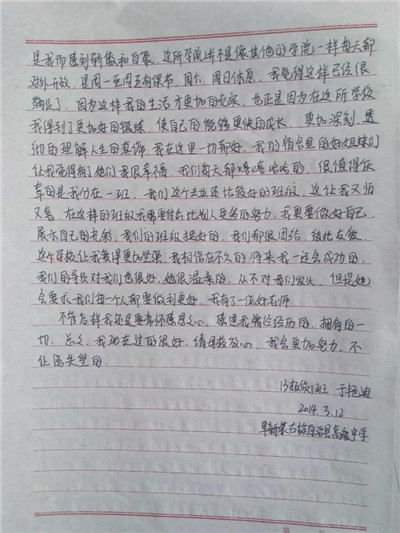 是我而感到骄傲和自豪、这所学院并不是像其他的学院一样每天都
对外开放，是周一至周五有课节，周六、周日休息，我觉得这样已经很
满足了，因为这样我的生活才更加的充实，也正是因为在这所学校
我得到了更加好的锻炼，使自己的能够更快的成长，更加深刻、透
彻的理解人生的真谛，我在这里一切都好，我的宿舍里的好姐妹们
让我觉得有了她们我很幸福，我们每天都嘻嘻哈哈的，很值得庆
幸的是我分在一班，我们这个专业还比较好的班级，这让我又怕
又喜，在这样的班级我需要付出比别人更多的努力，我更要做好自己，
展示自己的光彩，我们的班级挺好的，我们都很团结，彼此友爱，
这个学校让我变得更加坚强，我相信在不久的将来我一定会成功的，
我们的导员对我们也很好，她很温柔的，从不对我们发火，但是她
会要求我们每一个人都要做到更好，我有了一位好老师
不管怎样我还是要常怀感恩之心，感恩我曾经经历的，拥有的一
切，总之，我现在过的很好，请母校放心，我会更加努力，不
让您失望的
13报货1班 于艳迪
2014.3.12
阜新蒙古族自治县高级中学